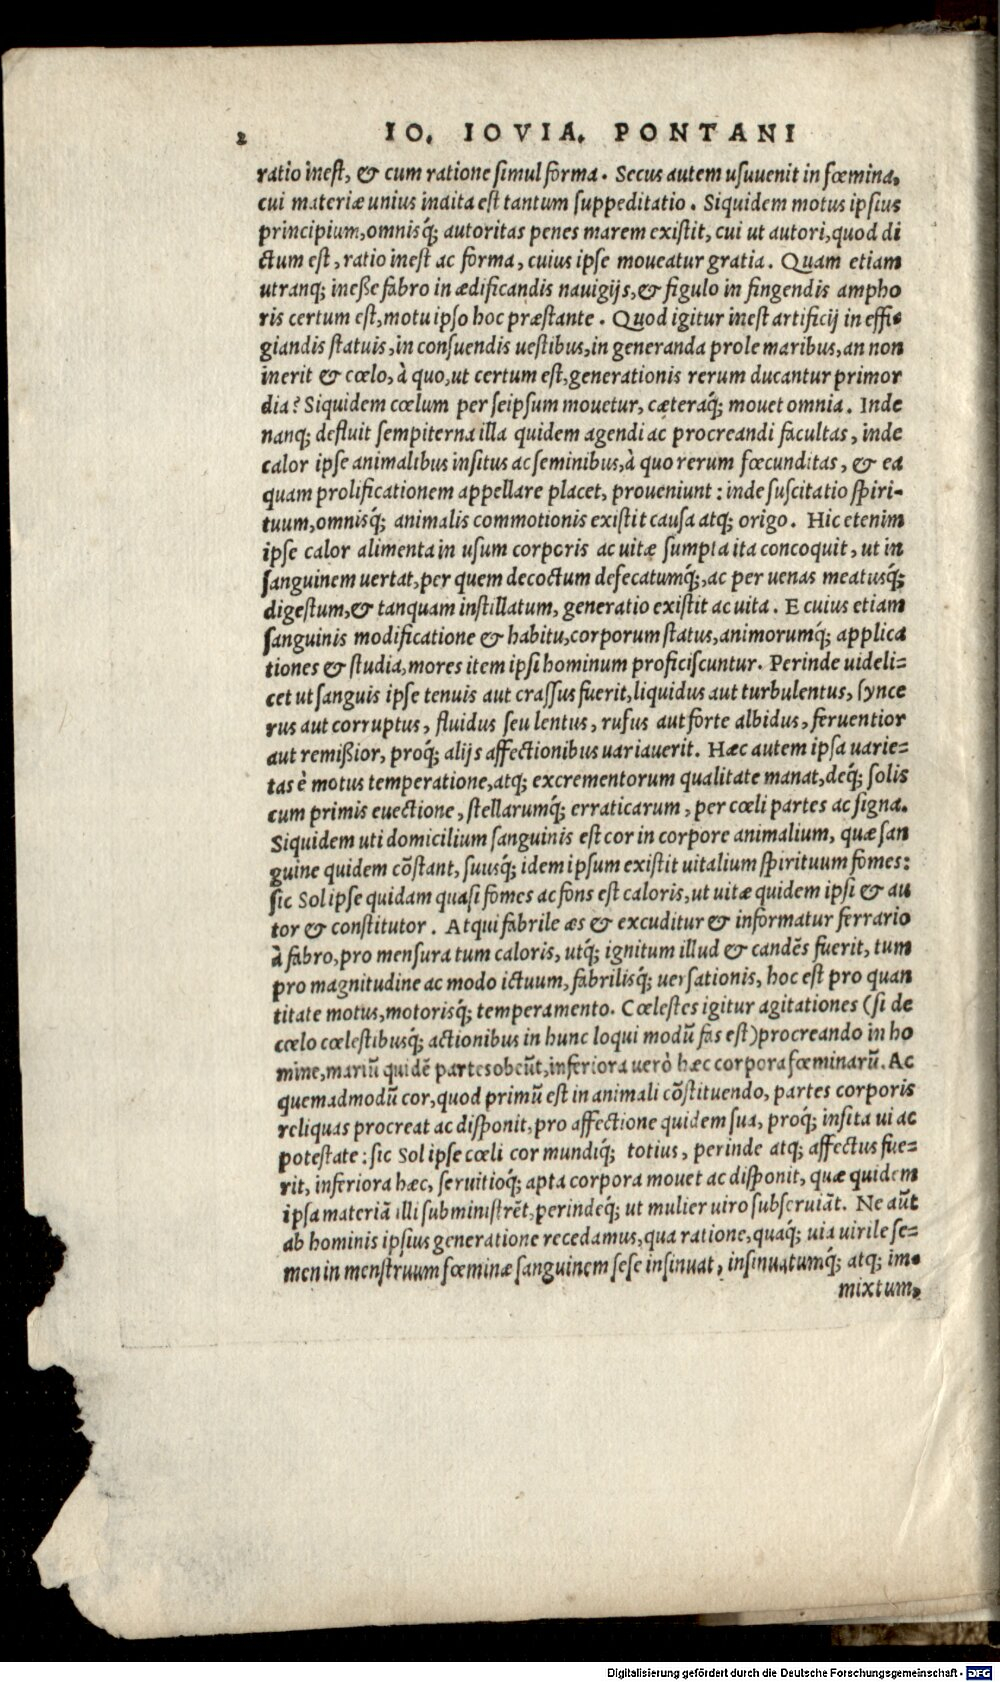 2 IO. IOVIA. PONTANI
ratio inest, & cum ratione simul forma. Secus autem usuuenit in fœmina,
cui materiæ unius indita est tantum suppeditatio. Siquidem motus ipsius
principium, omnisq́; autoritas penes marem existit, cui ut autori, quod di
ctum est, ratio inest ac forma, cuius ipse moueatur gratia. Quam etiam
utranq; inesse fabro in ædificandis nauigijs, & figulo in fingendis ampho
ris certum est, motu ipso hoc præstante. Quod igitur inest artificij in effi-
giandis statuis, in consuendis uestibus, in generanda prole maribus, an non
inerit & cœlo, à quo, ut certum est, generationis rerum ducantur primor
dia? Siquidem cœlum per seipsum mouetur, cæteraq́; mouet omnia. Inde
nanq; defluit sempiterna illa quidem agendi ac procreandi facultas, inde
calor ipse animalibus insitus ac seminibus, à quo rerum fœcunditas, & ea
quam prolificationem appellare placet, proueniunt: inde suscitatio spiri-
tuum, omnisq́; animalis commotionis existit causa atq; origo. Hic etenim
ipse calor alimenta in usum corporis ac uitæ sumpta ita concoquit, ut in
sanguinem uertat, per quem decoctum defecatumq́;, ac per uenas meatusq́;
digestum, & tanquam instillatum, generatio existit ac uita. E cuius etiam
sanguinis modificatione & habitu, corporum status, animorumq́; applica
tiones & studia, mores item ipsi hominum proficiscuntur. Perinde uideli-
cet ut sanguis ipse tenuis aut crassus fuerit, liquidus aut turbulentus, synce
rus aut corruptus, fluidus seu lentus, rufus aut forte albidus, feruentior
aut remißior, proq́; alijs affectionibus uariauerit. Hæc autem ipsa uarie-
tas è motus temperatione, atq; excrementorum qualitate manat, deq́; solis
cum primis euectione, stellarumq́; erraticarum, per cœli partes ac signa.
Siquidem uti domicilium sanguinis est cor in corpore animalium, quæ san
guine quidem cõstant, suusq́; idem ipsum existit uitalium spirituum fomes:
sic Sol ipse quidam quasi fomes ac fons est caloris, ut uitæ quidem ipsi & au
tor & constitutor. Atqui fabrile æs & excuditur & informatur ferrario
à fabro, pro mensura tum caloris, utq́; ignitum illud & candẽs fuerit, tum
pro magnitudine ac modo ictuum, fabrilisq́; uersationis, hoc est pro quan
titate motus, motorisq́; temperamento. Cœlestes igitur agitationes (si de
cœlo cœlestibusq́; actionibus in hunc loqui modũ fas est) procreando in ho
mine, mariũ quidẽ partes obeũt, inferiora uerò hæc corpora fœminarũ. Ac
quemadmodũ cor, quod primũ est in animali cõstituendo, partes corporis
reliquas procreat ac disponit, pro affectione quidem sua, proq́; insita ui ac
potestate: sic Sol ipse cœli cor mundiq́; totius, perinde atq; affectus fue-
rit, inferiora hæc, seruitioq́; apta corpora mouet ac disponit, quæ quidem
ipsa materiã illi subministrẽt, perindeq́; ut mulier uiro subseruiãt. Ne aũt
ab hominis ipsius generatione recedamus, qua ratione, quaq́; uia uirile se-
men in menstruum fœminæ sanguinem sese insinuat, insinuatumq́; atq; im-
mixtum,
Digitalisierung gefördert durch die Deutsche Forschungsgemeinschaft - DFG